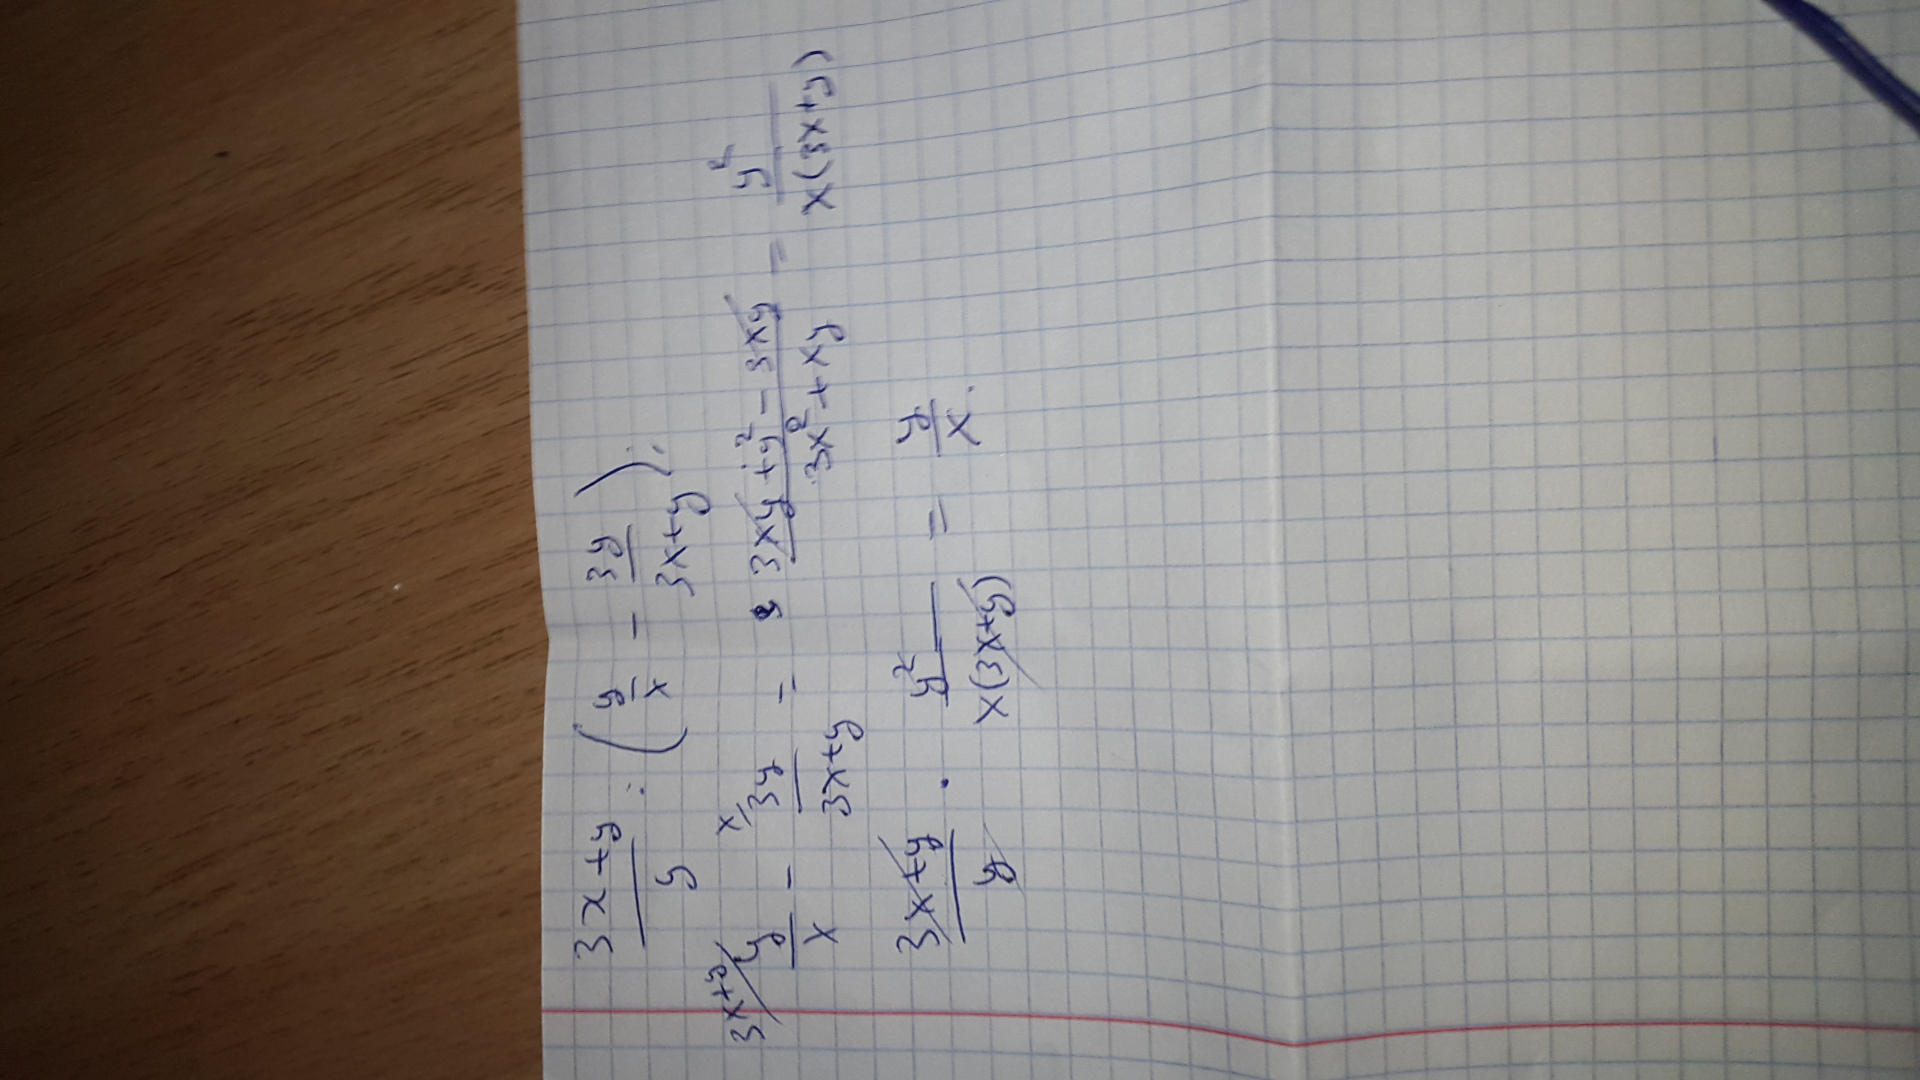 3x+y/y : (y/x - 3y/3x+y).
3x+y/ y/x - x/ 3y/3x+y = 3xy+y²-3xy/3x²+xy = y²/x(3x+y)
3x+y/y · y²/x(3x+y) = y/x.